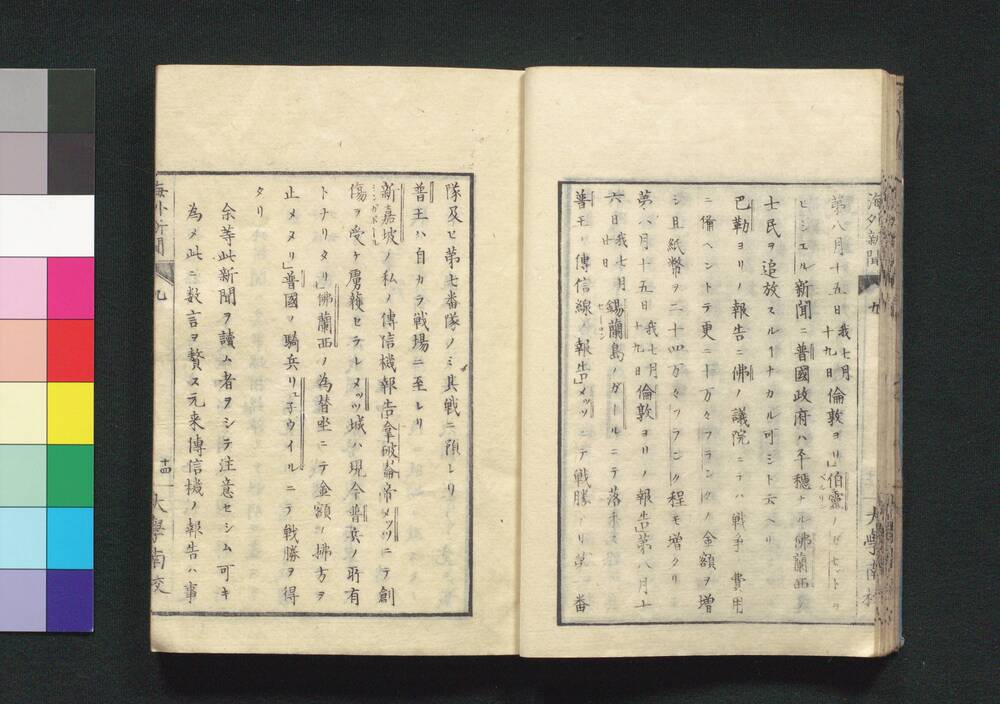 海外新聞
九
大學南校
第八月十五日我七月十九日倫敦ヨリ」伯靈ノ
ビシエル新聞ニ普國政府ハ平穏ナル佛蘭西
士民ヲ追放スルヿナカル可シト云ヘリ
巴勒ヨリノ報告ニ佛ノ議院ニテハ戦争ノ費用
ニ備ヘントテ更ニ十万々フランクノ金額ヲ増
シ且紙幣ヲ二十四万々フランク程モ増クリ
第八月十五日我七月十九日倫敦ヨリノ報告」第八月十
六日我七月廿日錫蘭島ノガールニテ落手ス
普王ノ傳信線ノ報告」メッツニテ戦勝
番
隊及ヒ第七番隊ノミ其戦ニ預レリ
普王ハ自カラ戦場ニ至レリ
新嘉坡シンガポールノ私ノ傳信機報告」拿破崙帝メッツニテ創
傷ヲ受ケ虜獲セラレメッツ城ハ現今普兵ノ所有
トナリタリ」佛蘭西ノ為替坐ニテ金額ノ拂方ヲ
止メタリ」普國ノ騎兵リュ子ウイルニテ戦勝ヲ得
タリ
余等此新聞ヲ讀ム者ヲシテ注意セシム可キ
為メ此ニ数言ヲ贅ス元来傳信機ノ報告ハ事
海外新聞
九
十四
大學南校